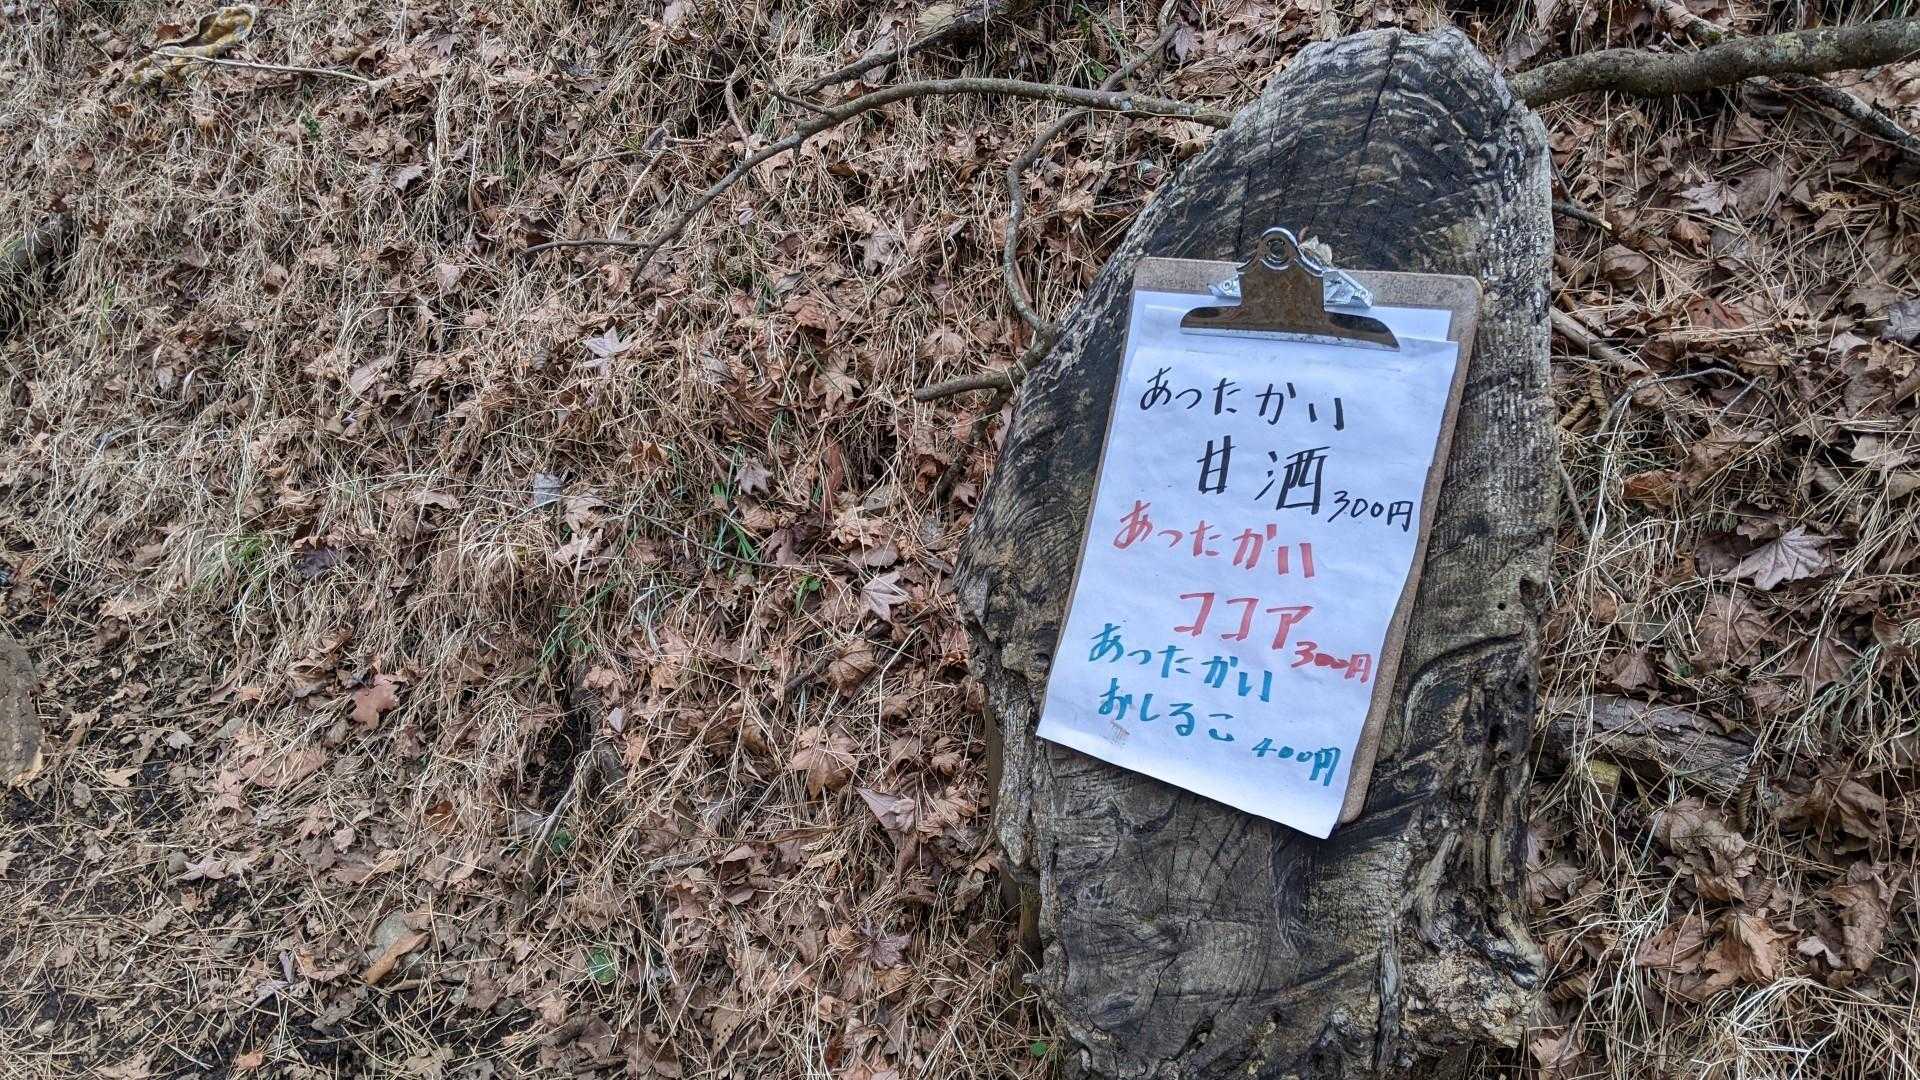 あったかい
甘酒 300円
あったかい
ココア 300円
あったかい
おしるこ 400円